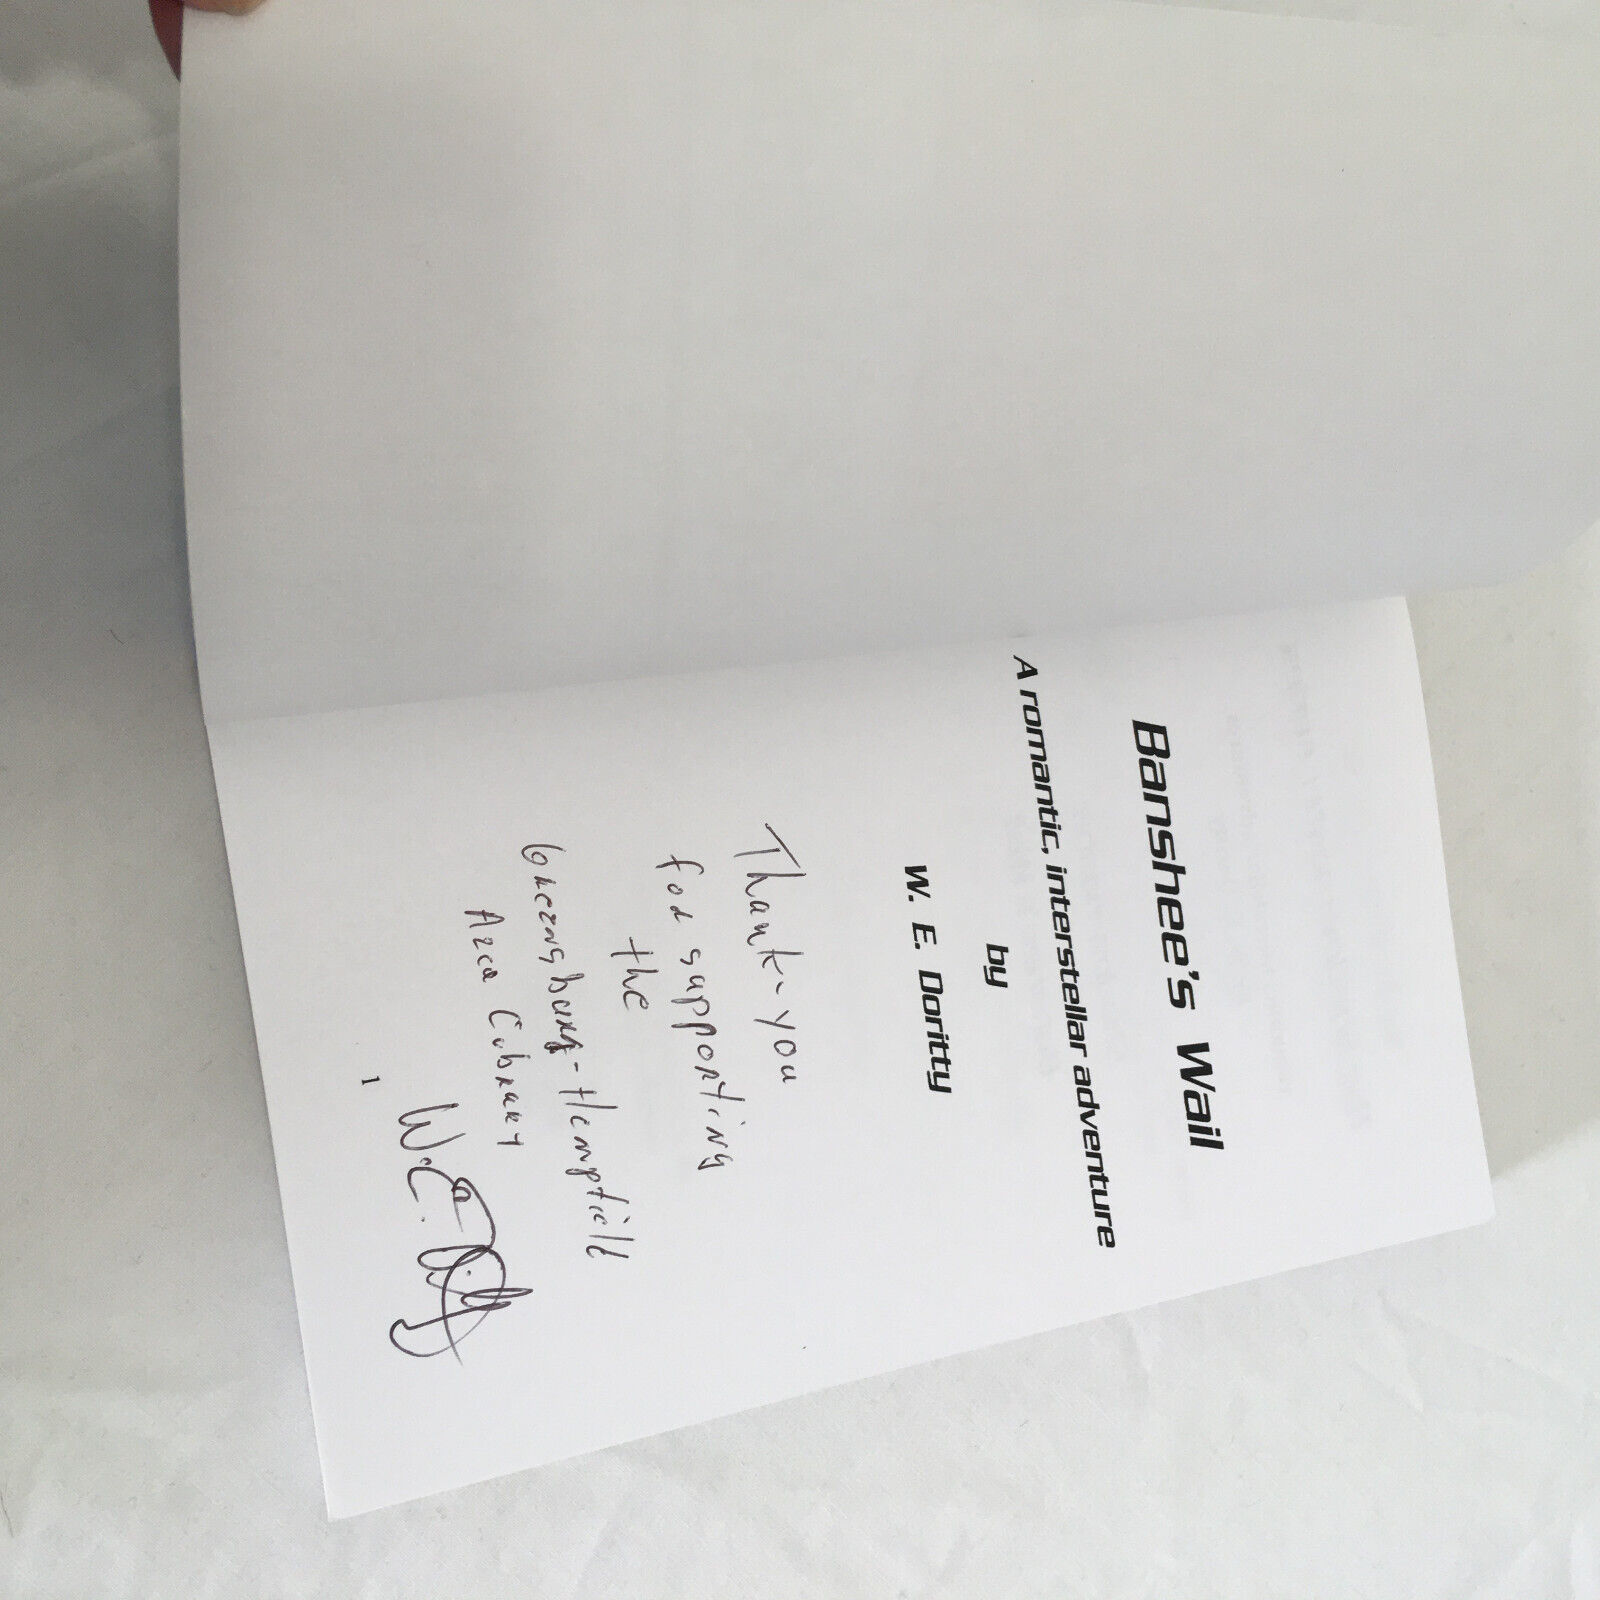 Banshee's Wail
A romantic, interstellar adventure
by
W. E. Doritty
Thank-you
for supporting
the
Greensburg-Hempfield
Area Library
W. E. Doritty
1